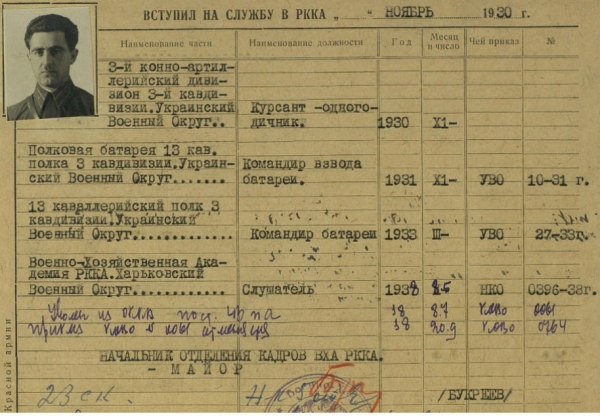 ВСТУПИЛ НА СЛУЖБУ В РККА „ " НОЯБРЬ 1930 г.
Наименование части Наименование должности Год Месяц и число Чей приказ №
3-й конно-артил-
лерийский диви-
зион 3-й кавди-
визии.Украинский Курсант -одного-
Военный Округ.. дичник. 1930 X1-
Полковая батарея 13 кав.
полка 3 кавдивизии.Украин- Командир взвода
ский Военный Округ....... батареи. 1931 X1- УВО 10-31 г.
13 каваллерийский полк 3
кавдивизии.Украинский
Военный Округ............ Командир батареи 1933 Ш- УВО 27-33г.
Военно-Хозяйственная Ака-
демия РККА.Харьковский
Военный Округ............ Слушатель 1938 НКО 0396-38г.
из РККА 38 8.7
38 20.9
НАЧАЛЬНИК ОТДЕЛЕНИЯ КАДРОВ ВХА РККА.
- МАЙОР
23 ск. /БУКРЕЕВ/
Красной армии